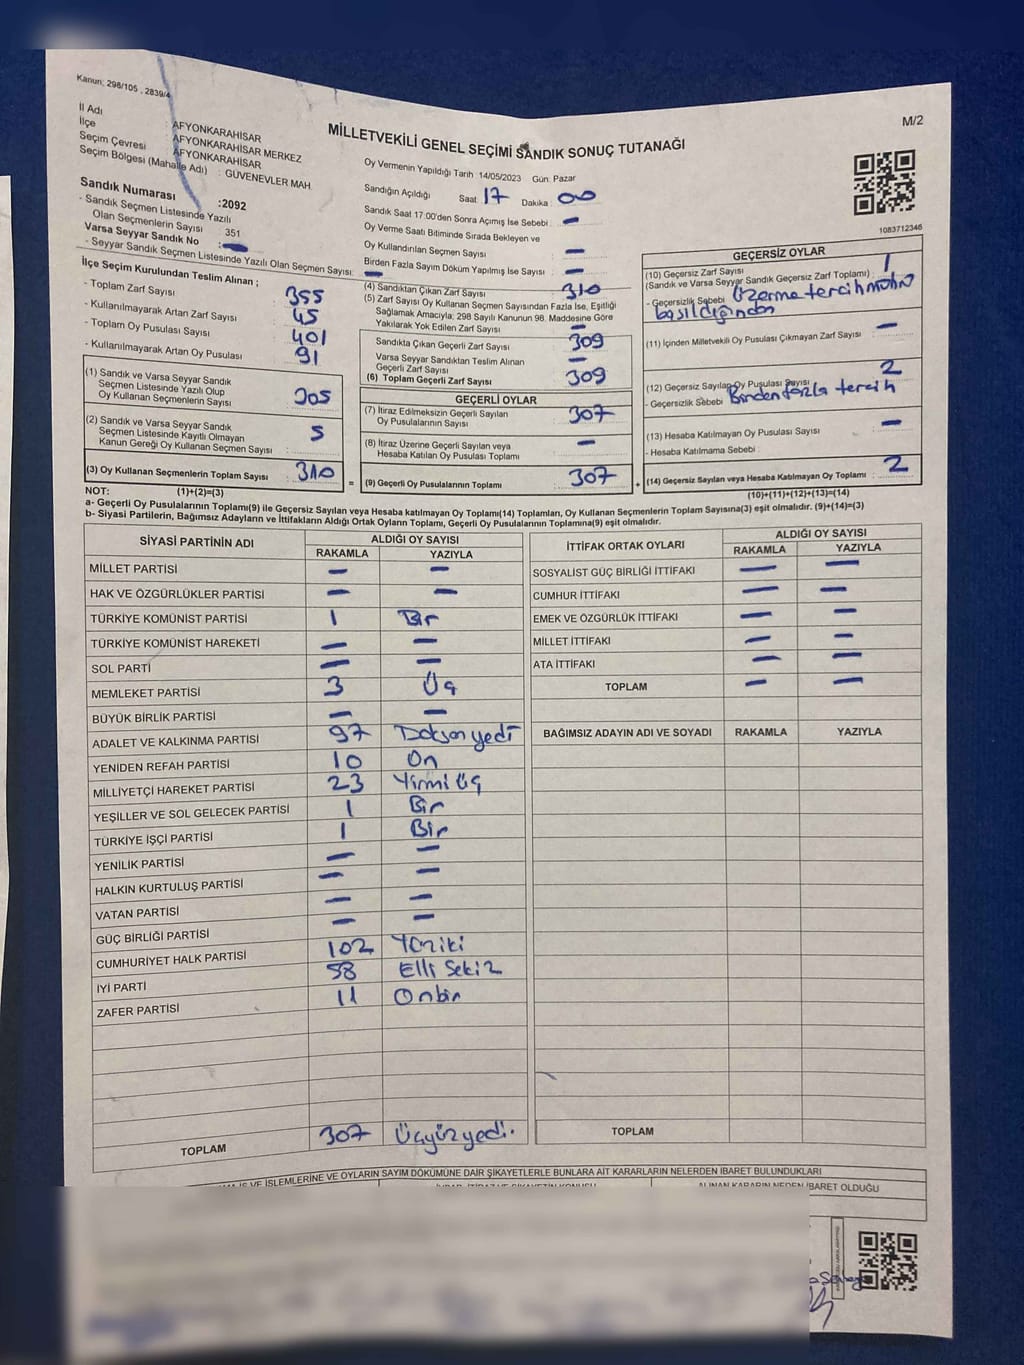 Kanun; 298/105 , 2839/4
M/2
MİLLETVEKİLİ GENEL SEÇİMİ SANDIK SONUÇ TUTANAĞI
İl Adı : AFYONKARAHİSAR
İlçe : AFYONKARAHİSAR MERKEZ
Seçim Çevresi : AFYONKARAHİSAR
Seçim Bölgesi (Mahalle Adı) : GÜVENEVLER MAH
Sandık Numarası :2092
- Sandık Seçmen Listesinde Yazılı
Olan Seçmenlerin Sayısı 351
Varsa Seyyar Sandık No : -
- Seyyar Sandık Seçmen Listesinde Yazılı Olan Seçmen Sayısı: -
İlçe Seçim Kurulundan Teslim Alınan ;
- Toplam Zarf Sayısı 355
- Kullanılmayarak Artan Zarf Sayısı 45
- Toplam Oy Pusulası Sayısı 401
- Kullanılmayarak Artan Oy Pusulası 91
(1) Sandık ve Varsa Seyyar Sandık
Seçmen Listesinde Yazılı Olup
Oy Kullanan Seçmenlerin Sayısı 305
(2) Sandık ve Varsa Seyyar Sandık
Seçmen Listesinde Kayıtlı Olmayan
Kanun Gereği Oy Kullanan Seçmen Sayısı : 5
(3) Oy Kullanan Seçmenlerin Toplam Sayısı 310
Oy Vermenin Yapıldığı Tarih 14/05/2023 Gün: Pazar
Sandığın Açıldığı Saat 17 Dakika 00
Sandık Saat 17:00'den Sonra Açımış İse Sebebi : -
Oy Verme Saati Bitiminde Sırada Bekleyen ve
Oy Kullandırılan Seçmen Sayısı -
Birden Fazla Sayım Döküm Yapılmış İse Sayısı -
(4) Sandıktan Çıkan Zarf Sayısı 310
(5) Zarf Sayısı Oy Kullanan Seçmen Sayısından Fazla İse, Eşitliği
Sağlamak Amacıyla; 298 Sayılı Kanunun 98. Maddesine Göre
Yakılarak Yok Edilen Zarf Sayısı -
Sandıkta Çıkan Geçerli Zarf Sayısı 309
Varsa Seyyar Sandıktan Teslim Alınan
Geçerli Zarf Sayısı -
(6) Toplam Geçerli Zarf Sayısı 309
GEÇERLİ OYLAR
(7) İtiraz Edilmeksizin Geçerli Sayılan
Oy Pusulalarının Sayısı 307
(8) İtiraz Üzerine Geçerli Sayılan veya
Hesaba Katılan Oy Pusulası Toplamı -
= (9) Geçerli Oy Pusulalarının Toplamı 307 +
1083712346
GEÇERSİZ OYLAR
(10) Geçersiz Zarf Sayısı 1
(Sandık ve Varsa Seyyar Sandık Geçersiz Zarf Toplamı)
- Geçersizlik Sebebi Üzerine tercih mührü
basıldığından
(11) İçinden Milletvekili Oy Pusulası Çıkmayan Zarf Sayısı -
(12) Geçersiz Sayılan Oy Pusulası Sayısı 2
- Geçersizlik Sebebi Birden fazla tercih
(13) Hesaba Katılmayan Oy Pusulası Sayısı -
- Hesaba Katılmama Sebebi
(14) Geçersiz Sayılan veya Hesaba Katılmayan Oy Toplamı : 2
NOT: (1)+(2)=(3)
(10)+(11)+(12)+(13)=(14)
a- Geçerli Oy Pusulalarının Toplamı(9) ile Geçersiz Sayılan veya Hesaba katılmayan Oy Toplamı(14) Toplamları, Oy Kullanan Seçmenlerin Toplam Sayısına(3) eşit olmalıdır. (9)+(14)=(3)
b- Siyasi Partilerin, Bağımsız Adayların ve İttifakların Aldığı Ortak Oyların Toplamı, Geçerli Oy Pusulalarının Toplamına(9) eşit olmalıdır.
SİYASİ PARTİNİN ADI ALDIĞI OY SAYISI
RAKAMLA YAZIYLA
MİLLET PARTİSİ - -
HAK VE ÖZGÜRLÜKLER PARTİSİ - -
TÜRKİYE KOMÜNİST PARTİSİ 1 Bir
TÜRKİYE KOMÜNİST HAREKETİ - -
SOL PARTİ - -
MEMLEKET PARTİSİ 3 Üç
BÜYÜK BİRLİK PARTİSİ - -
ADALET VE KALKINMA PARTİSİ 97 Doksan yedi
YENİDEN REFAH PARTİSİ 10 On
MİLLİYETÇİ HAREKET PARTİSİ 23 Yirmi üç
YEŞİLLER VE SOL GELECEK PARTİSİ 1 Bir
TÜRKİYE İŞÇİ PARTİSİ 1 Bir
YENİLİK PARTİSİ - -
HALKIN KURTULUŞ PARTİSİ - -
VATAN PARTİSİ - -
GÜÇ BİRLİĞİ PARTİSİ - -
CUMHURİYET HALK PARTİSİ 102 Yüziki
İYİ PARTİ 58 Elli Sekiz
ZAFER PARTİSİ 11 Onbir
TOPLAM 307 Üçyüzyedi.
İTTİFAK ORTAK OYLARI ALDIĞI OY SAYISI
RAKAMLA YAZIYLA
SOSYALİST GÜÇ BİRLİĞİ İTTİFAKI - -
CUMHUR İTTİFAKI - -
EMEK VE ÖZGÜRLÜK İTTİFAKI - -
MİLLET İTTİFAKI - -
ATA İTTİFAKI - -
TOPLAM - -
BAĞIMSIZ ADAYIN ADI VE SOYADI RAKAMLA YAZIYLA
TOPLAM
İŞ VE İŞLEMLERİNE VE OYLARIN SAYIM DÖKÜMÜNE DAİR ŞİKAYETLERLE BUNLARA AİT KARARLARIN NELERDEN İBARET BULUNDUKLARI
ALINAN KARARIN NEDEN İBARET OLDUĞU